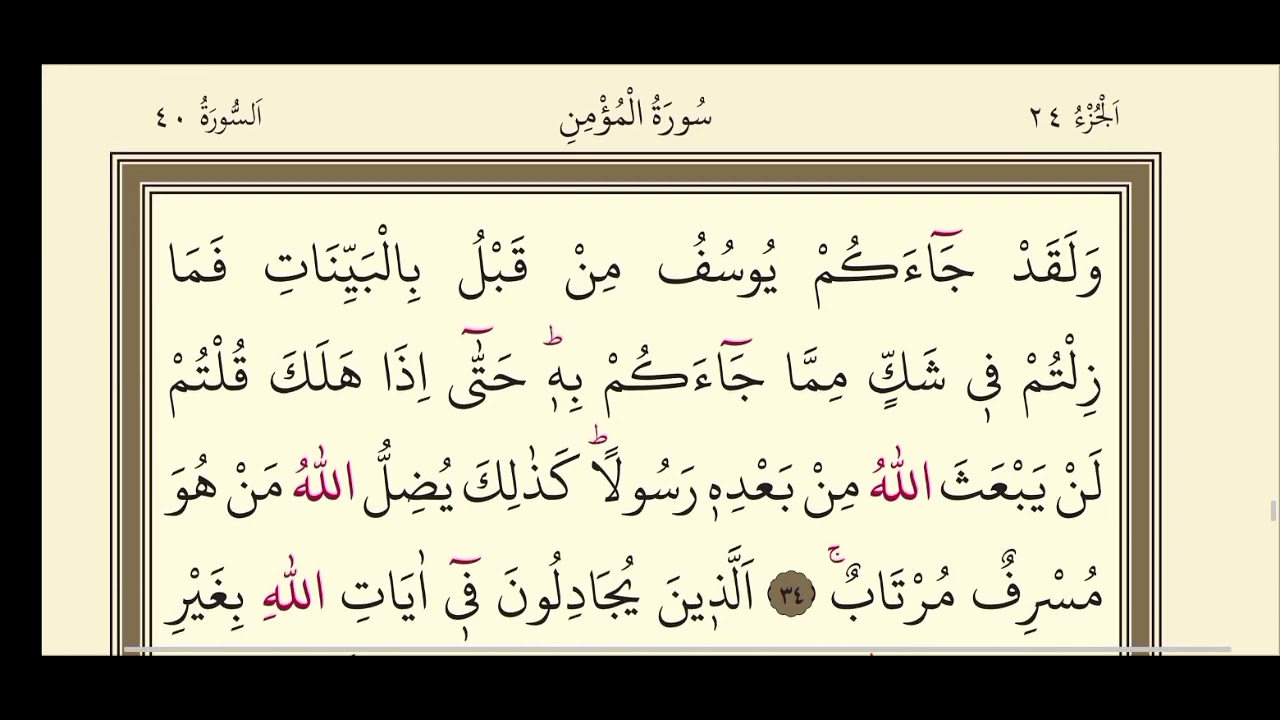 اَلْجُزْءُ ٢٤ سُورَةُ الْمُؤْمِنِ اَلسُّورَةُ ٤٠
وَلَقَدْ جَٓاءَكُمْ يُوسُفُ مِنْ قَبْلُ بِالْبَيِّنَاتِ فَمَا
زِلْتُمْ ف۪ي شَكٍّ مِمَّا جَٓاءَكُمْ بِه۪ۜ حَتّٰٓى اِذَا هَلَكَ قُلْتُمْ
لَنْ يَبْعَثَ اللّٰهُ مِنْ بَعْدِه۪ رَسُولًاۜ كَذٰلِكَ يُضِلُّ اللّٰهُ مَنْ هُوَ
مُسْرِفٌ مُرْتَابٌۚ ٣٤ اَلَّذ۪ينَ يُجَادِلُونَ ف۪ٓي اٰيَاتِ اللّٰهِ بِغَيْرِ